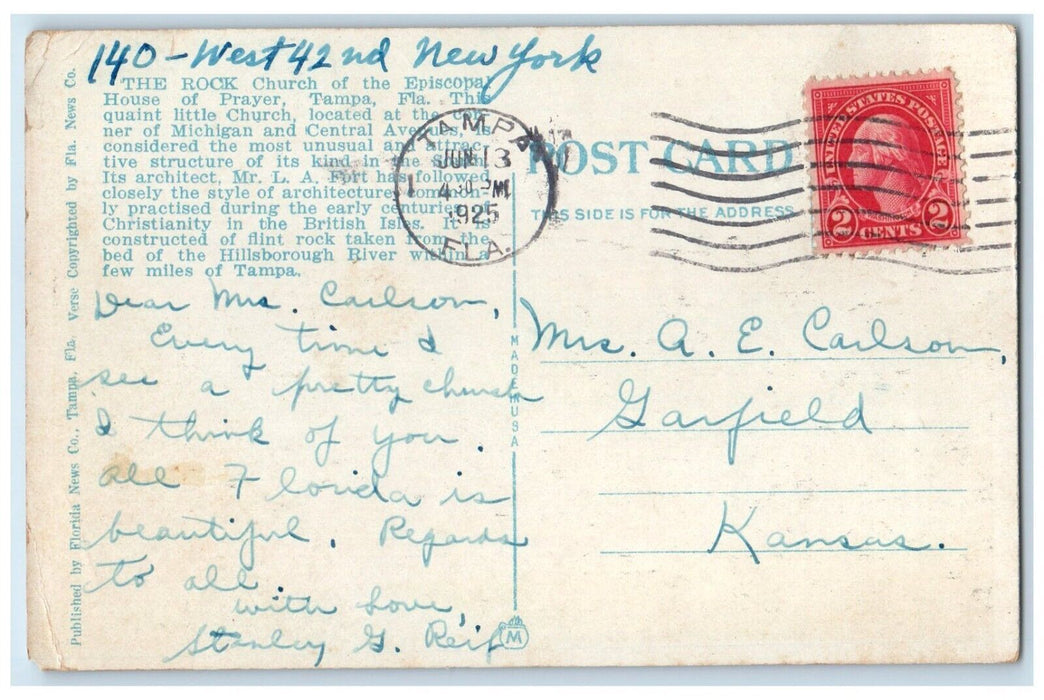 140 - West 42nd New York
THE ROCK Church of the Episcopal
House of Prayer, Tampa, Fla. This
quaint little Church, located at the cor-
ner of Michigan and Central Avenues, is
considered the most unusual and attrac-
tive structure of its kind in the
Its architect, Mr. L. A. Fort has followed
closely the style of architecture common-
ly practised during the early centuries of
Christianity in the British Isles. It is
constructed of flint rock taken from the
bed of the Hillsborough River within a
few miles of Tampa.
Dear Mrs. Carlson,
Every time I
see a pretty church
I think of you.
All Florida is
beautiful. Regards
to all.
with love,
Stanley G. Reif
Published by Florida News Co., Tampa, Fla. Verse Copyrighted by Fla. News Co.
TAMPA
JUN 13
4 30 PM
1925
FLA.
1
POST CARD
THIS SIDE IS FOR THE ADDRESS
UNITED STATES POSTAGE
2 CENTS 2
MADE IN USA
M
Mrs. A. E. Carlson,
Garfield
Kansas.